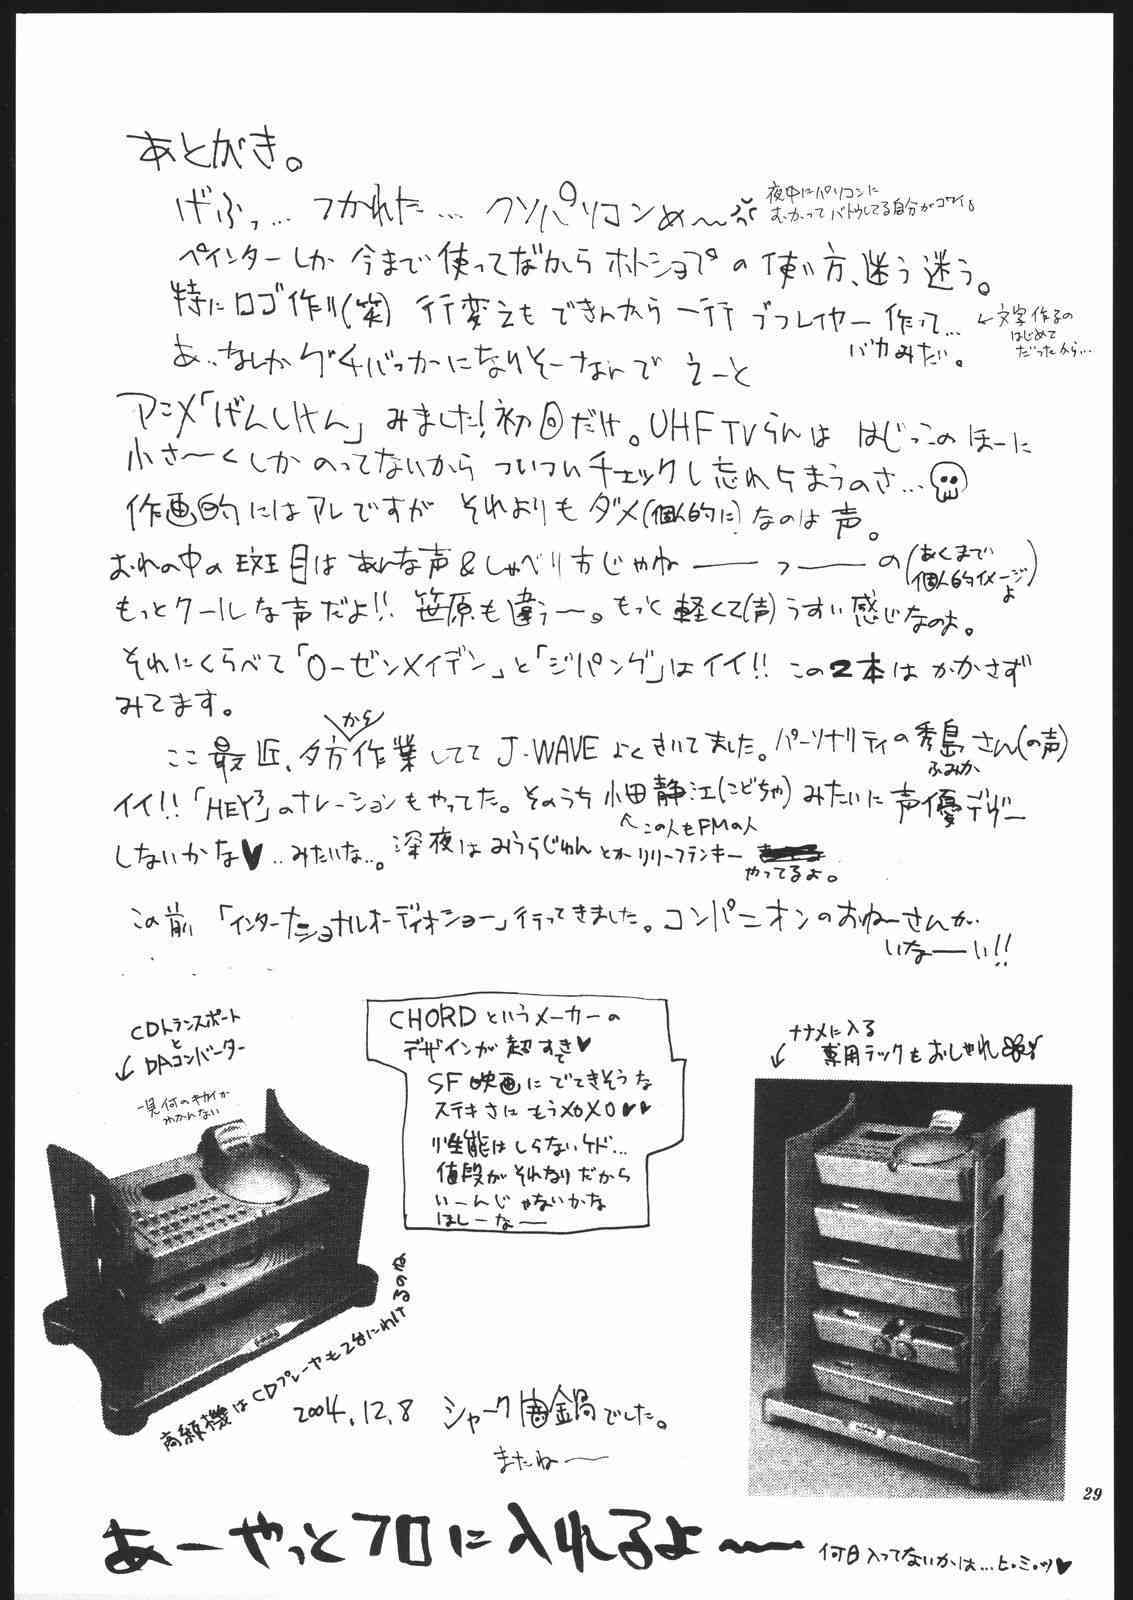 あとがき。
げふっ… つかれた… クソパソコンめ〜
夜中にパソコンに
むかってバトウしてる自分がコワイ。
ペインターしか今まで使ってなかったからホトショプの使い方、迷う迷う。
特にロゴ作り(笑) 行変えもできんから一行づつレイヤー作って…
バカみたい。
←文字作るの
はじめて
だったから…
あ、なしかグチバッカーになりそーなんで えーと
アニメ「げんしけん」みました!初回だけ。UHF TVらんは はじっこのほーに
小さ〜くしかのってないから ついついチェックし忘れちまうのさ…
作画的にはアレですが それよりもダメ(個人的に)なのは声。
おれの中の斑目はあんな声&しゃべり方じゃねーっーの(あくまで
個人的イメージ)
よ
もっとクールな声だよ!! 笹原も違うー。もっと軽くて(声)うすい感じなのよ。
それにくらべて「ローゼンメイデン」と「ジパング」はイイ!! この2本はかかさず
みてます。
ここ最近、夕方から作業してて J-WAVEよくきいてました。パーソナリティの秀島さん(の声)
ふみか
イイ!!「HEY3」のナレーションもやってた。そのうち小田静江(こどちゃ)みたいに声優デヴー
↑この人もFMの人
しないかな♥…みたいな…。深夜はみうらじゅんとかリリーフランキー
やってるよ。
この前「インターナショナルオーディオショー」行ってきました。コンパニオンのおねーさんが
いなーい!!
CDトランスポート
と
DAコンバーター
一見何のキカイか
わかんない
CHORDというメーカーの
デザインが超すきで♥
SF映画にでてきそうな
ステキさにもうメロメロ♥♥
性能はしらないケド…
値段がそれなりだから
いーんじゃないかな
ほしーなー
ナナメに入る
専用ラックもおしゃれ
高級機はCDプレーヤも2台にわける
2004.12.8 シャーク歯鍋でした。
またねー
29
あーやっとフロに入れるよ〜
何日入ってないかは…ヒ・ミ・ツ♥